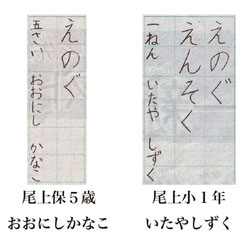 えのぐ
五さい おおにし かなこ
尾上保５歳
おおにしかなこ
えのぐ
えんそく
一ねん いたや しずく
尾上小１年
いたやしずく